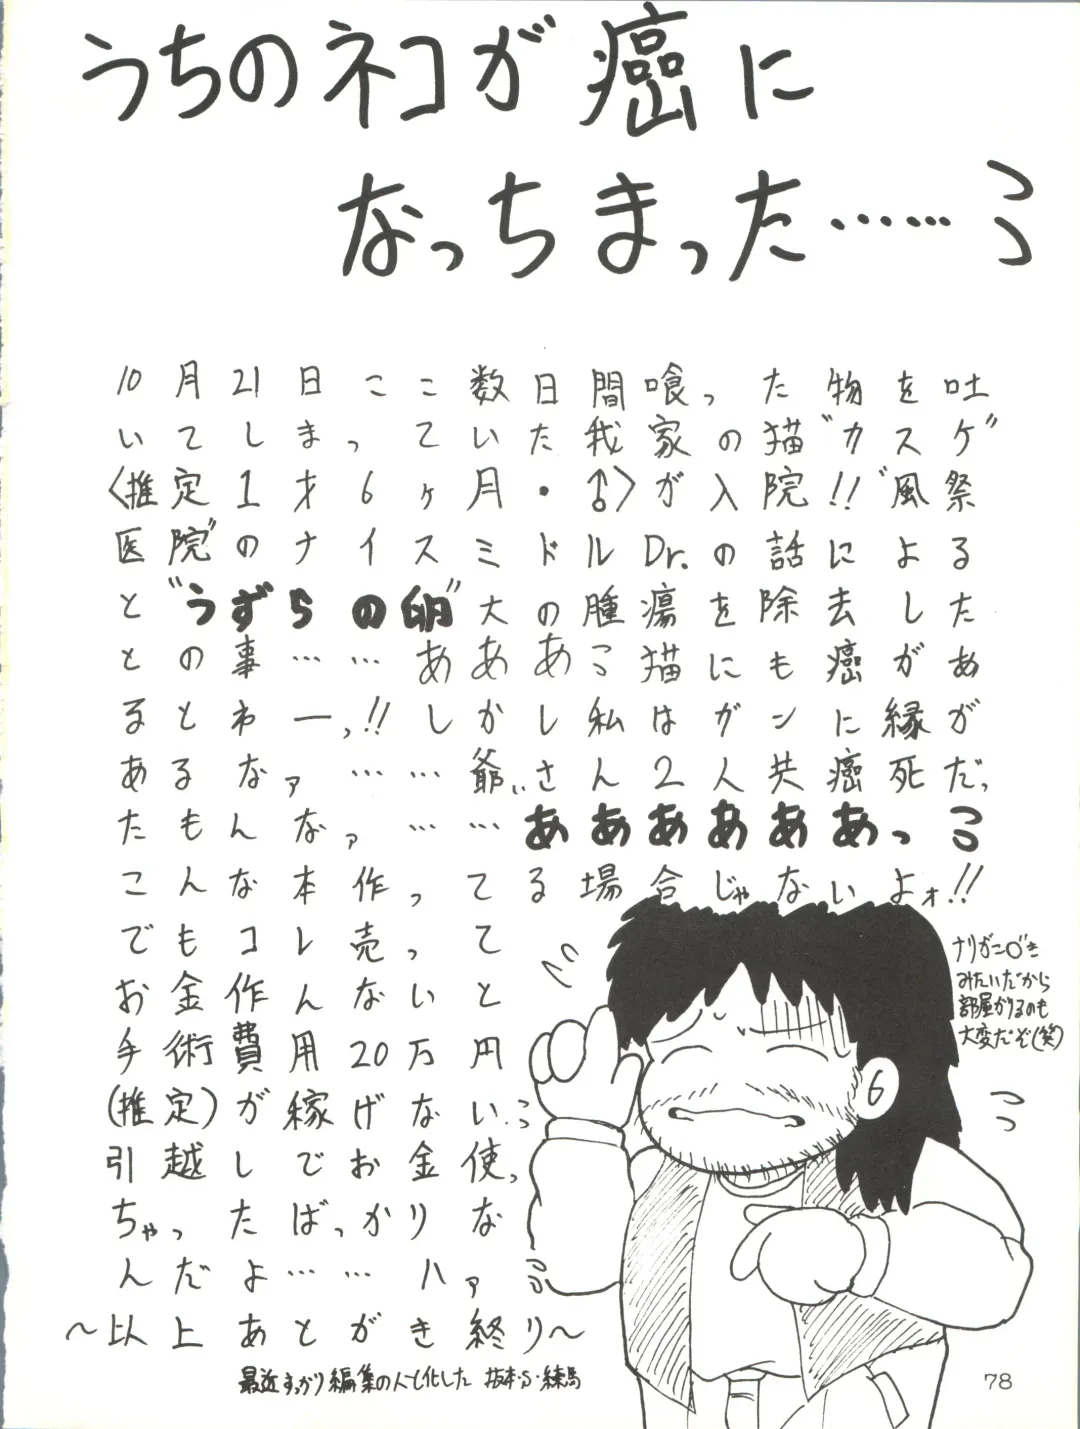 うちのネコが癌に
なっちまった……
10月21日ここ数日間喰った物を吐
いてしまっていた我家の猫"カスケ"
〈推定1才6ヶ月・♂〉が入院!!"風祭
医院"のナイスミドルDr.の話による
と"うずらの卵"大の腫瘍を除去した
との事……あああ猫にも癌があ
るとわーっ!!しかし私はガンに縁が
あるなァ……爺ぃさん2人共癌死だっ
たもんなァ……ああああああっ
こんな本作ってる場合じゃないよォ!!
でもコレ売って
お金作んないと
手術費用20万円
(推定)が稼げない
引越しでお金使っ
ちゃったばっかりな
んだよ……ハァ
〜以上あとがき終り〜
最近すっかり編集の人と化した 坂本・S・練馬
みたいだから
部屋かりるのも
大変だぞ(笑)
6
78